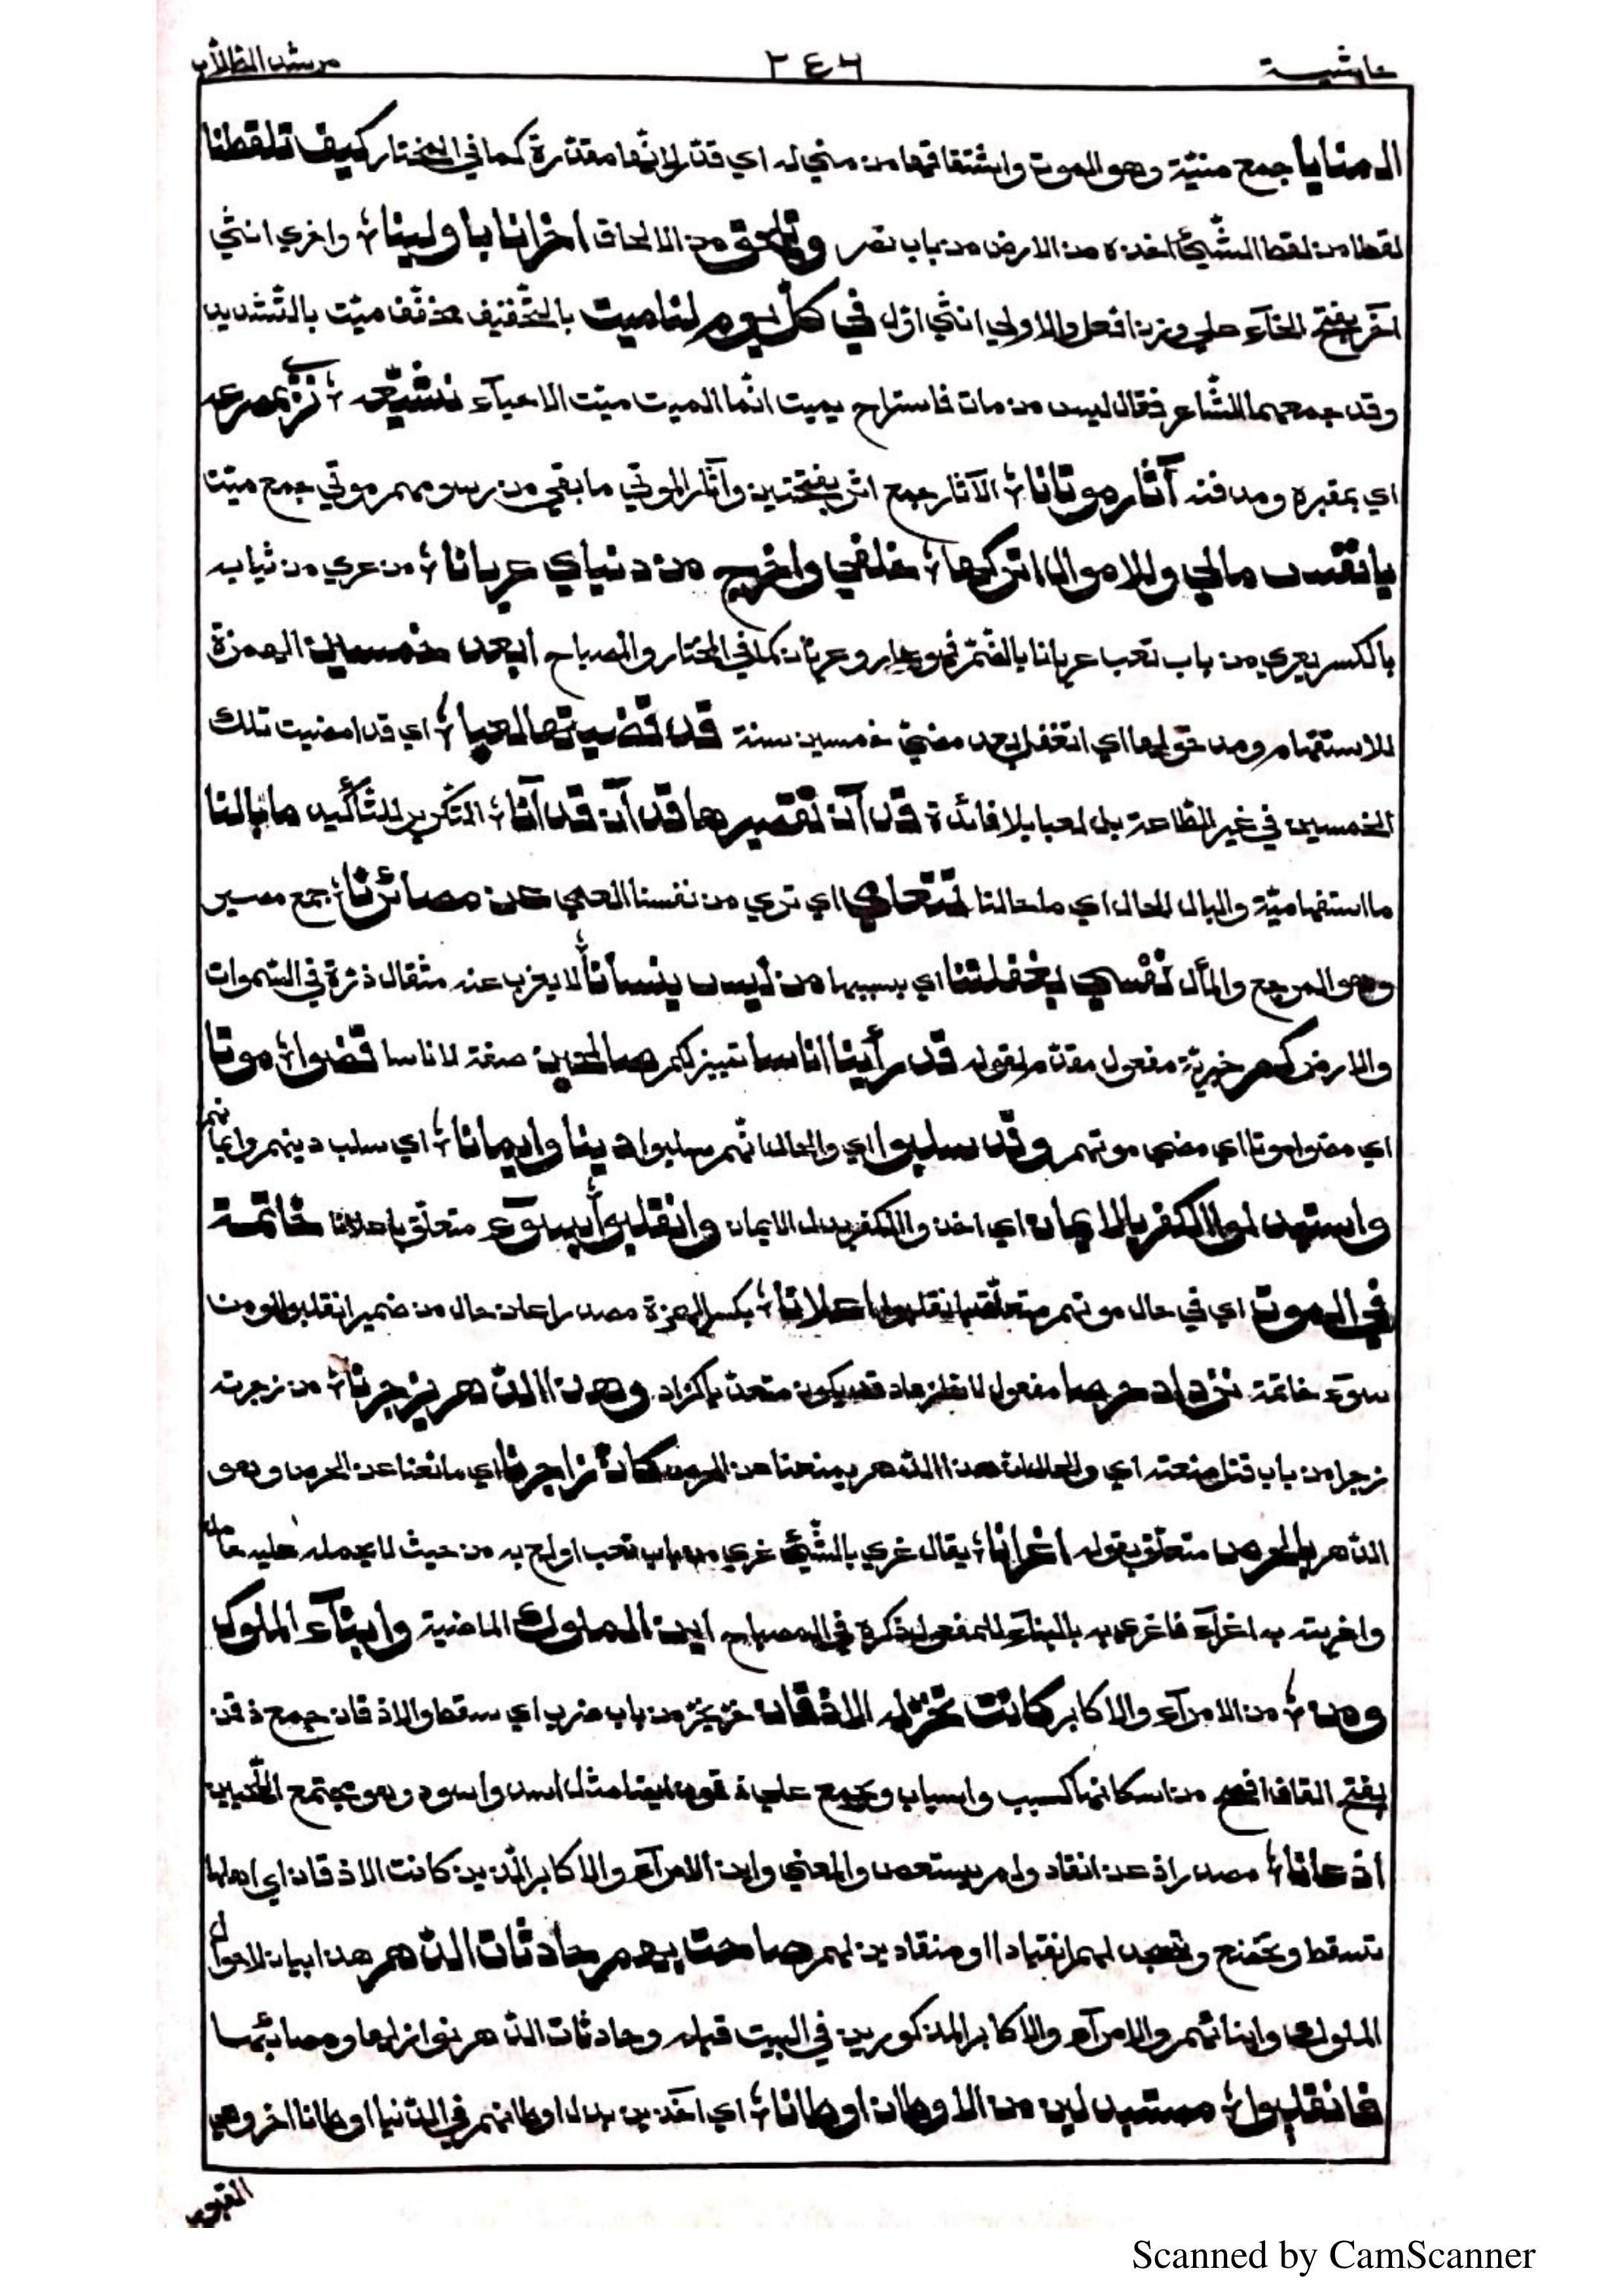 حاشية ٢٤٦ مرشد الطلاب
المنايا جمع منيّة وهو الموت واشتقاقها من مني له اي قدّر لانّها مقدّرة كما في المختار كيف تلقطنا
لقطا من لقط الشّيئ اخذه من الارض من باب نصر وتلحق من الالحاق اخرانا باولينا؛ واخري انثي
آخر بفتح الخآء علي وزن افعل والاولي انثي اوّل في كلّ يوم لنا ميت بالتّخفيف مخفّف ميّت بالتّشديد
وقد جمعهما الشّاعر فقال ليس من مات فاستراح بميت انّما الميت ميّت الاحيآء نشيّعه؛ نري بمصرعه
اي بمقبره ومدفنه آثار موتانا؛ الآثار جمع اثر بفتحتين وآثار الموتي ما بقي من رسومهم موتي جمع ميّت
يا نفس مالي وللاموال اتركها؛ خلفي واخرج من دنياي عريانا؛ من عري من ثيابه
بالكسر يعري من باب تعب عريانا بالضّمّ فهو عار وعريان كما في المختار والمصباح أبعد خمسين الهمزة
للاستفهام ومدخولها اي اتغفل بعد مضيّ خمسين سنة قد قضّيتها لعبا؛ اي قد امضيت تلك
الخمسين في غير الطّاعة بل لعبا بلا فائدة قد آن تقصيرها قد آن قد آنا؛ التّكرير للتّأكيد ما بالنا
ما استفهاميّة والبال الحال اي ما حالنا نتعامي اي نري من نفسنا العمي عن مصائرنا؛ جمع مصير
وهو المرجع والمأل ننسي بغفلتنا اي بسببها من ليس ينسانا؛ لا يعزب عنه مثقال ذرّة في السّموات
والارض كم خبريّة مفعول مقدّم لقوله قد رأينا اناسا تمييز كم صالحين صفة لاناسا قضوا؛ موتا
اي مضوا موتا اي مضي موتهم وقد سلبوا اي والحال انّهم سلبوا دينا وايمانا؛ اي سلب دينهم وايمانهم
واستبدلوا الكفر بالايمان اي اخذوا الكفر بدل الايمان وانقلبوا؛ بسوء متعلّق باعلانا خاتمة
في الموت اي في حال موتهم متعلّق بانقلبوا اعلانا؛ بكسر الهمزة مصدر اعلن حال من ضمير انقلبوا او من
سوء خاتمة نزداد حرصا مفعول لانّ زاد قد يكون متعدّيا كزاد وهذا الدّهر يزجرنا؛ من زجرته
زجرا من باب قتل منعته اي والحال انّ هذا الدّهر يمنعنا عن الحرص كأنّ زاجرنا اي مانعنا عن الحرص وهو
الدّهر بالحرص متعلّق بقوله اغرانا؛ يقال غري بالشّيئ غري من باب تعب اولع به من حيث لا يحمله عليه حامل
واغريته به اغرآء فاغري به بالبنآء للمفعول ذكره في المصباح اين الملوك الماضية وابنآء الملوك
ومن؛ من الامرآء والاكابر كانت تخرّ له الاذقان خرّ يخرّ من باب ضرب اي سقط والاذقان جمع ذقن
بفتح القاف افصح من اسكانها كسبب واسباب ويجمع علي ذقون ايضا مثل اسد واسود وهو مجتمع اللّحيين
اذعانا؛ مصدر اذعن انقاد ولم يستعص والمعني واين الامرآء والاكابر الّذين كانت الاذقان اي اهلها
تسقط وتخضع وتسجد لهم انقيادا او منقادين لهم صاحت بهم حادثات الدّهر هذا بيان لاحوال
الملوك وابنائهم والامرآء والاكابر المذكورين في البيت قبله وحادثات الدّهر نوازلها ومصائبها
فانقلبوا؛ مستبدلين من الاوطان اوطانا؛ اي آخذين بدل اوطانهم في الدّنيا اوطانا اخر وهي
القبور
Scanned by CamScanner